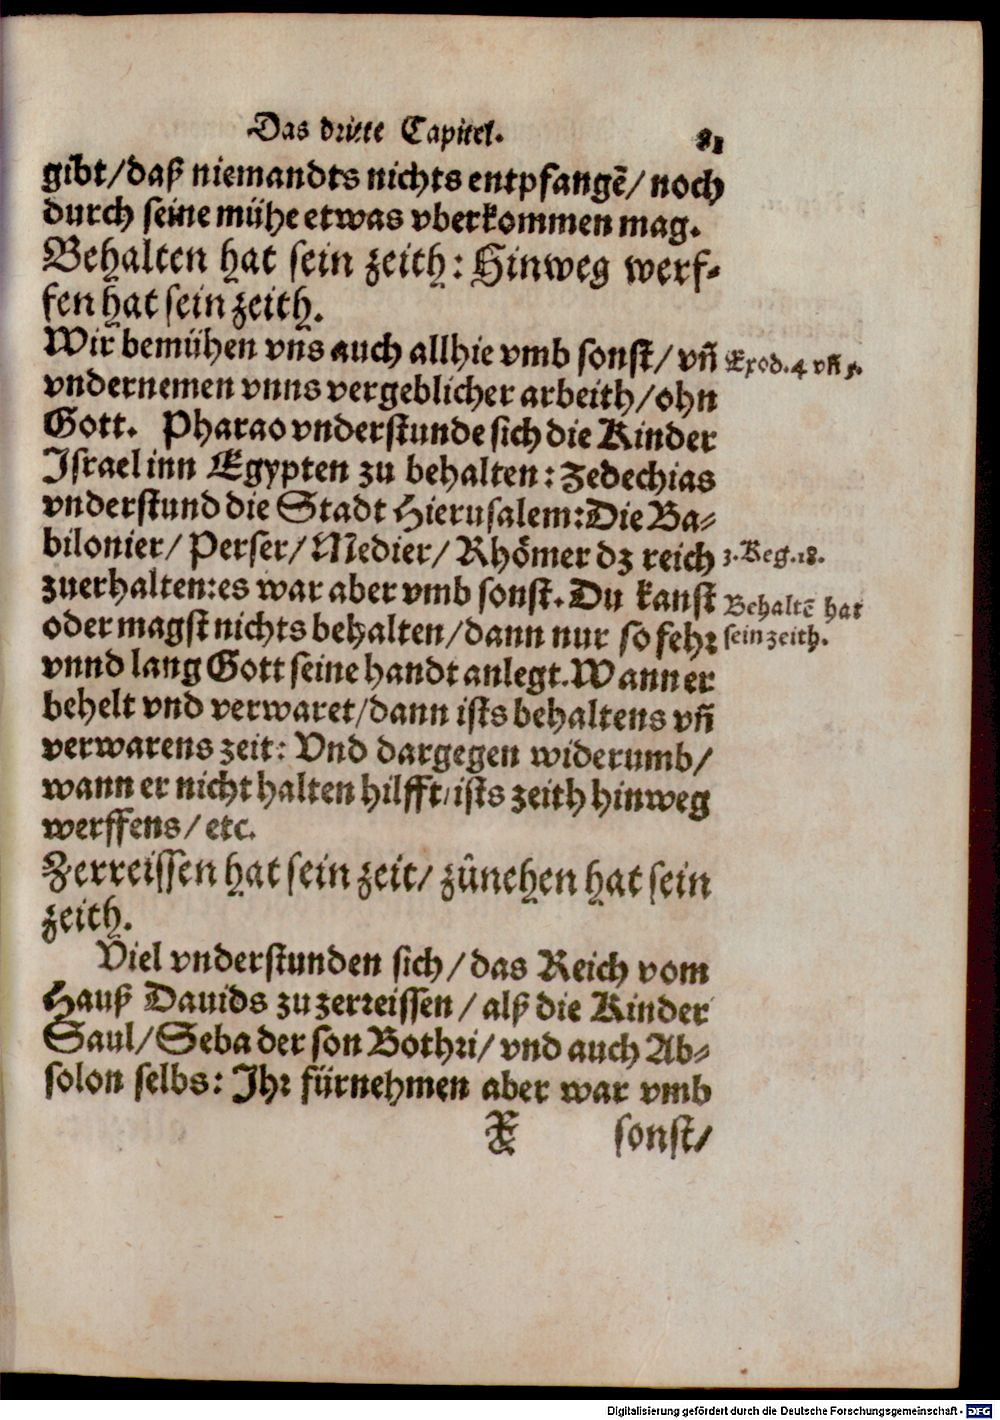 Das dritte Capitel. 81
gibt/daß niemandts nichts entpfangẽ/ noch
durch seine mühe etwas vberkommen mag.
Behalten hat sein zeith: Hinweg werf-
fen hat sein zeith.
Wir bemühen vns auch allhie vmb sonst/ vñ
Exod. 4 vñ 5.
vndernemen vnns vergeblicher arbeith/ohn
Gott. Pharao vnderstunde sich die Kinder
Israel inn Egypten zu behalten: Zedechias
vnderstund die Stadt Hierusalem: Die Ba-
bilonier/ Perser/ Medier/ Rhömer dz reich
3. Reg. 18.
zuerhalten: es war aber vmb sonst. Du kanst
Behaltẽ hat
oder magst nichts behalten/dann nur so fehr
sein zeith.
vnnd lang Gott seine handt anlegt. Wann er
behelt vnd verwaret/dann ists behaltens vñ
verwarens zeit: Vnd dargegen widerumb/
wann er nicht halten hilfft/ists zeith hinweg
werffens/ etc.
Zerreissen hat sein zeit/ zůnehen hat sein
zeith.
Viel vnderstunden sich/das Reich vom
Hauß Dauids zu zerreissen/ alß die Kinder
Saul/Seba der son Bothri/ vnd auch Ab-
solon selbs: Ihr fürnehmen aber war vmb
X sonst/
Digitalisierung gefördert durch die Deutsche Forschungsgemeinschaft - DFG